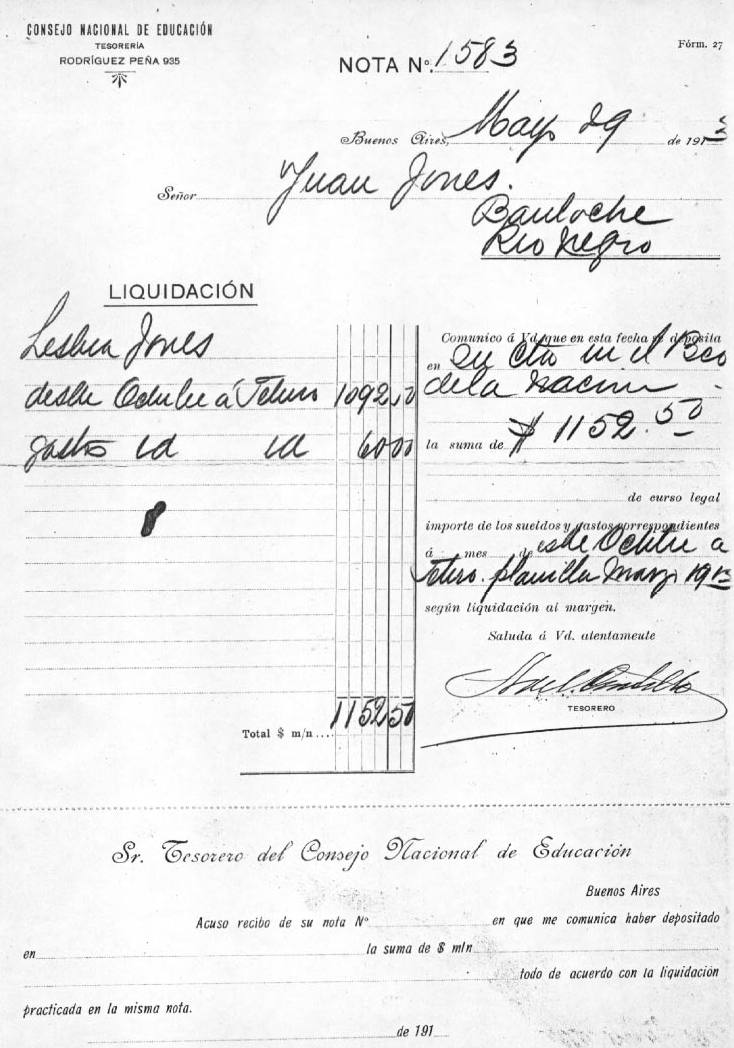 CONSEJO NACIONAL DE EDUCACIÓN
TESORERÍA
RODRÍGUEZ PEÑA 935
Fórm. 27
NOTA Nº. 1583
Buenos Aires, Mayo 29 de 1913
Señor Juan Jones.
Bariloche
Rio Negro
LIQUIDACIÓN
Jones
desde Octubre á Febrero 1092,50
gastos id id 6000
Total $ m/n.... 115250
Comunico á Vd. que en esta fecha se deposita
en su Cta en el Bco
de la Nacion -
la suma de $ 1152.50
de curso legal
importe de los sueldos y gastos correspondientes
á mes desde Octubre a
Febrero. planilla Marzo 1913
según liquidación al margen.
Saluda á Vd. atentamente
TESORERO
Sr. Tesorero del Consejo Nacional de Educación
Buenos Aires
Acuso recibo de su nota Nº en que me comunica haber depositado
en la suma de $ m/n
todo de acuerdo con la liquidación
practicada en la misma nota.
de 191